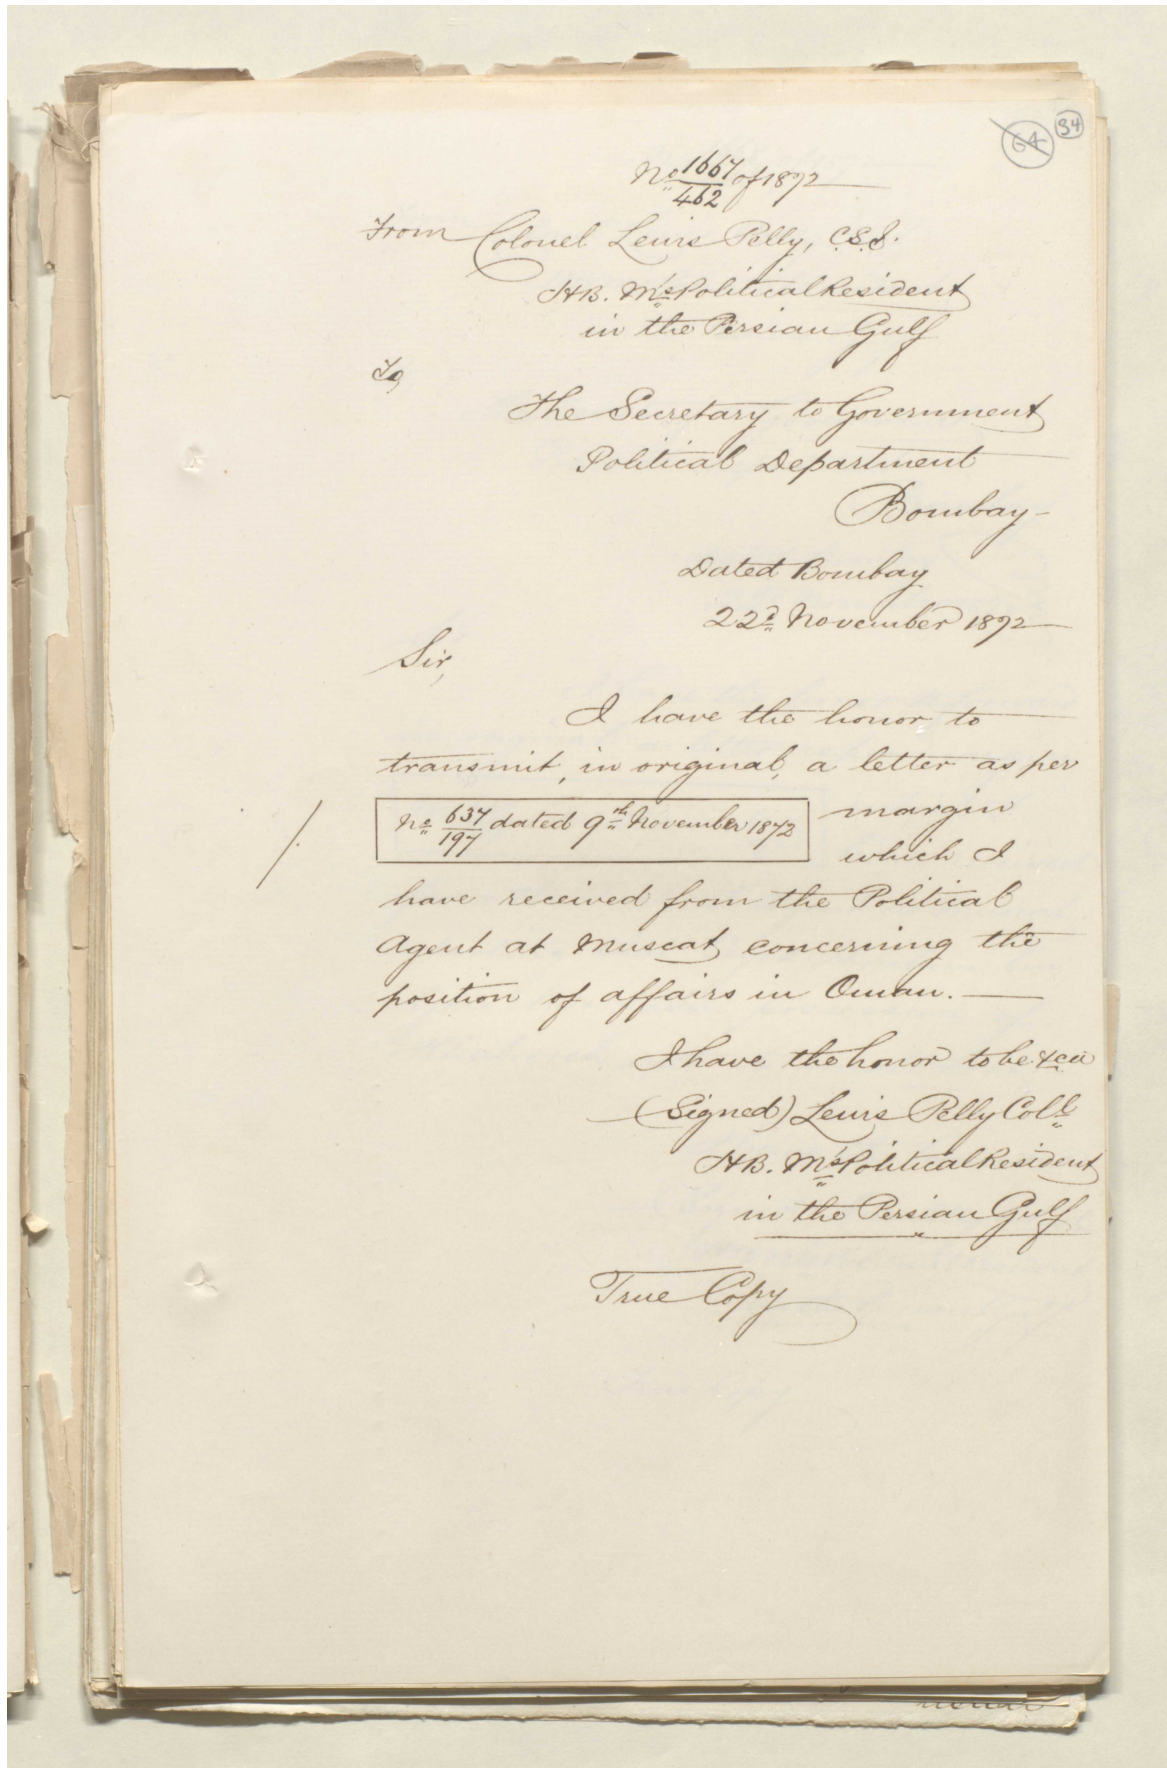 64 34
No 1667/462 of 1872
From Colonel Lewis Pelly, C.S.I.
H.B. M's Political Resident
in the Persian Gulf
To,
The Secretary to Government
Political Department
Bombay -
Dated Bombay
22d November 1872
Sir,
I have the honor to
transmit, in original, a letter as per
No 637/197 dated 9th November 1872
margin
which I
have received from the Political
Agent at Muscat concerning the
position of affairs in Oman.
I have the honor to be &ca
(Signed) Lewis Pelly Coll
H.B. M's Political Resident
in the Persian Gulf
True Copy